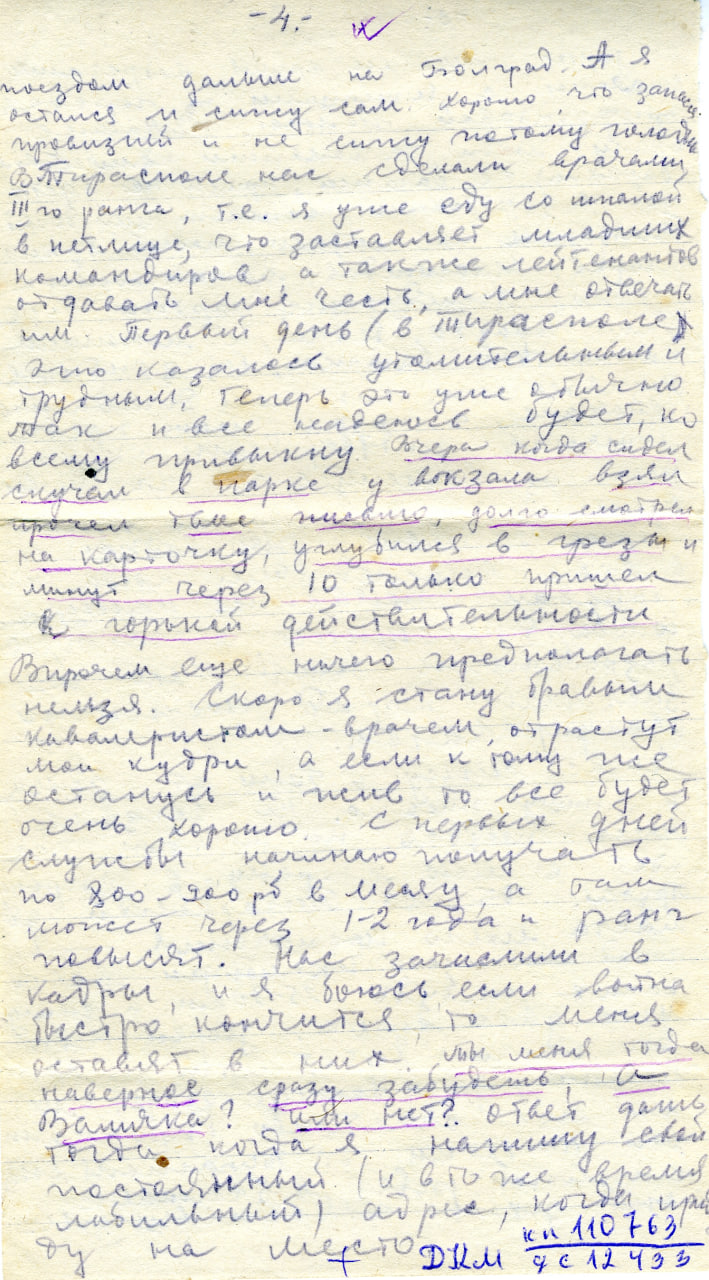 -4.-
поездом дальше на Болград. А я
остался и сижу сам. Хорошо, что запасся
провизией и не сижу потому голодный
В Тирасполе нас сделали врачами
III го ранга, т.е. я уже еду со шпалой
в петлице, что заставляет младших
командиров, а также лейтенантов
отдавать мне честь, а мне отвечать
им. Первый день (в Тирасполе)
это казалось утомительным и
трудным, теперь это уже обычно
так и все надеюсь будет, ко
всему привыкну. Вчера когда сидел
скучал в парке у вокзала взял
прочел твое письмо, долго смотрел
на карточку, углубился в грезы и
минут через 10 только пришел
к горькой действительности
Впрочем еще ничего предполагать
нельзя. Скоро я стану бравым
кавалеристом-врачем, отрастут
мои кудри, а если к тому же
останусь и жив то все будет
очень хорошо. С первых дней
службы начинаю получать
по 800-900 рб в месяц, а там
может через 1-2 года и ранг
повысят. Нас зачислили в
кадры, и я боюсь, если война
быстро кончится, то меня
оставят в них. Ты меня тогда
наверное сразу забудешь, а
Валичка? Или нет? ответ дашь
тогда когда я напишу свой
постоянный (и в то же время
мобильный) адрес, когда при
ду на место
ДКМ кп 110763
дс 12433